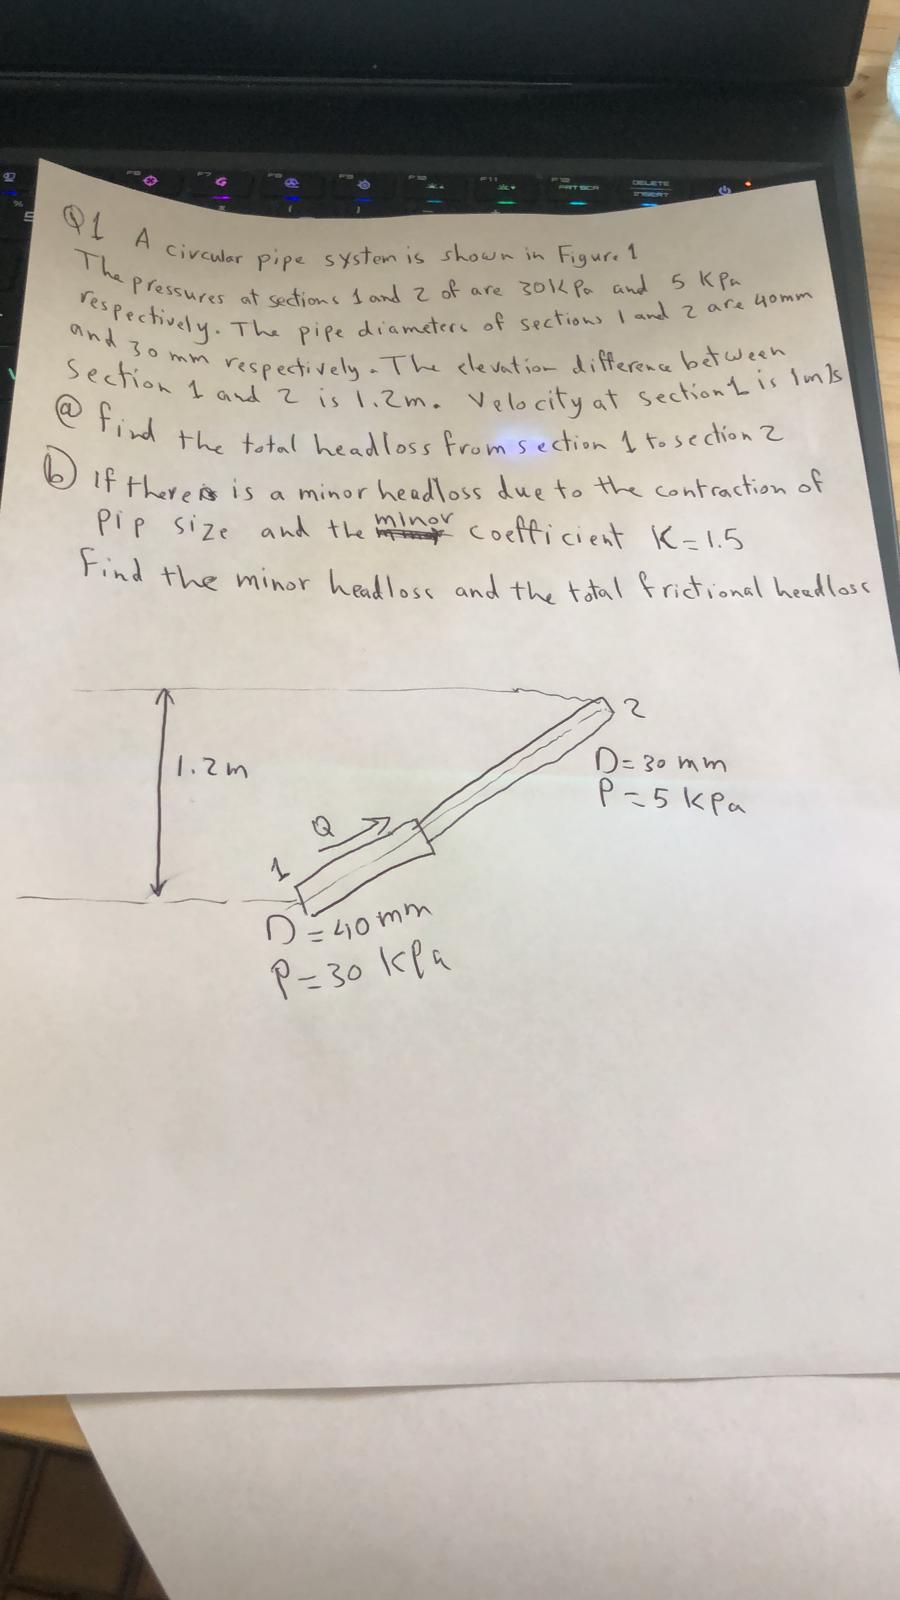 F7
F8
F9
F10
F11
F12
PRT SCR
DELETE
INSERT
%
5
Q1 A circular pipe system is shown in Figure 1
The pressures at sections 1 and 2 of are 30 KPa and 5 KPa
respectively. The pipe diameters of sections 1 and 2 are 40mm
and 30 mm respectively. The elevation difference between
Section 1 and 2 is 1.2m. Velocity at section 1 is 1m/s
a Find the total headloss from section 1 to section 2
b If there is is a minor headloss due to the contraction of
pip size and the minor coefficient K=1.5
Find the minor headloss and the total frictional headloss
2
1.2m
D=30 mm
P=5 KPa
Q
1
D=40 mm
P=30 KPa